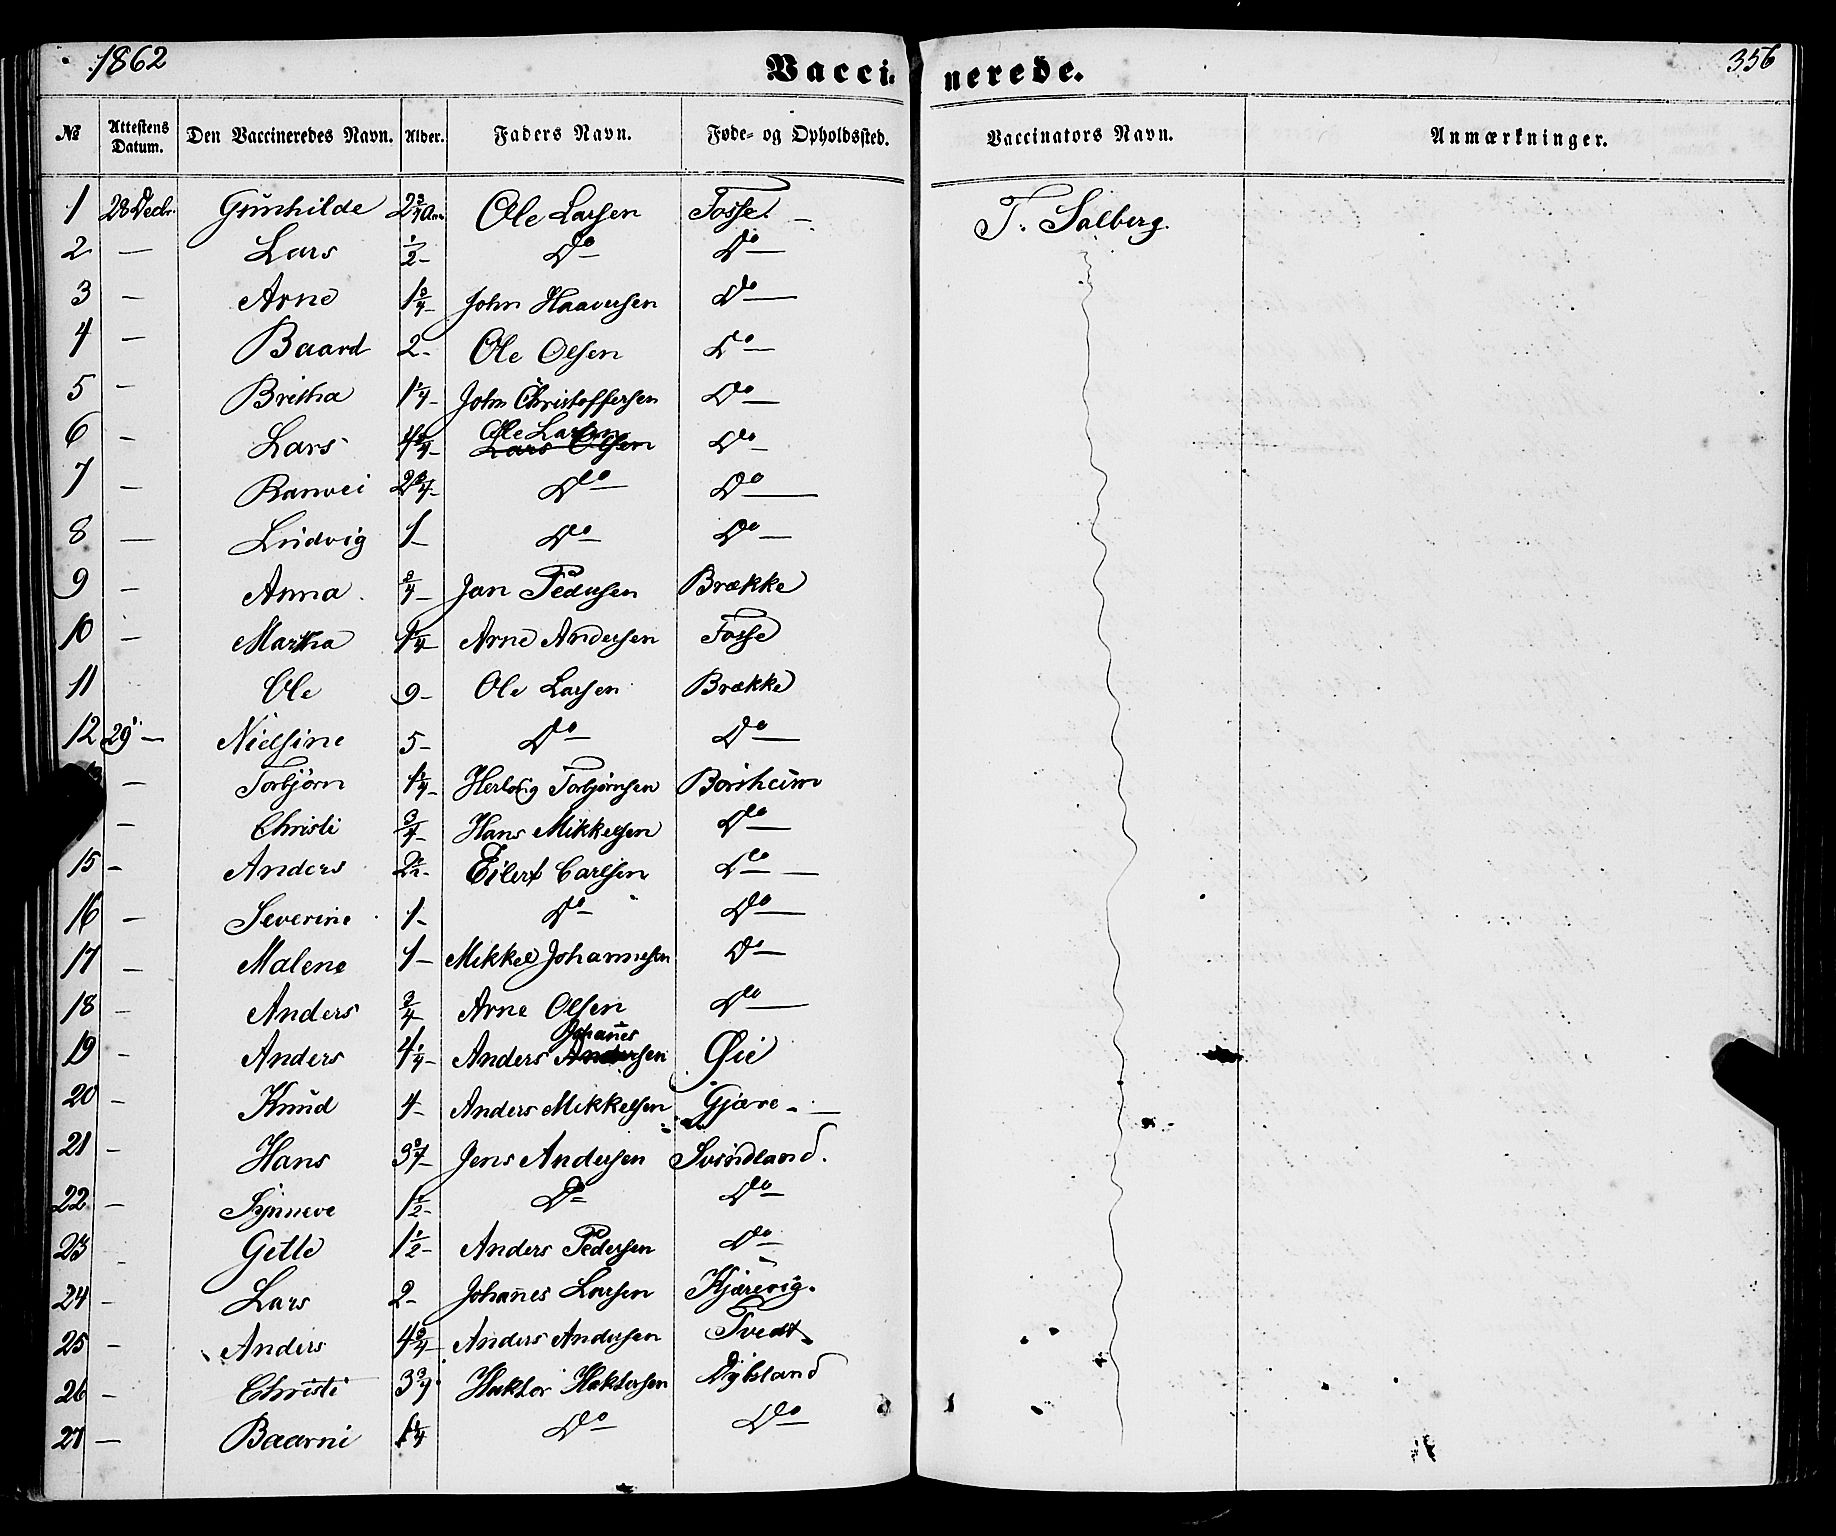 1862 Vaccinerede. 356
№ Attestens Datum. Den Vaccineredes Navn. Alder. Faders Navn. Føde- og Opholdssted. Vaccinators Navn. Anmærkninger.
1 28 Decbr. Gunhilde 2 3/4 Aar Ole Larsen Fosse. T. Salberg.
2 — Lars 1/2 - Do — Do —
3 — Arne 1 3/4 - John Haaversen Do —
4 — Baard 2 - Ole Olsen Do —
5 — Britha 1 1/4 - John Christoffersen Do —
6 — Lars 4 3/4 - Ole Larsen Lars Olsen Do —
7 — Ranvei 2 3/4 - Do — Do —
8 — Ludvig 1 - Do — Do —
9 — Anna 3/4 - Jan Pedersen Brække
10 — Martha 1 1/4 - Arne Andersen Fosse
11 Ole 9 - Ole Larsen Brække
12 29 — Nielsine 5 - Do — Do —
— Torbjørn 1 1/4 - Torbjørnsen Borsheim
— Christi 3/4 - Hans Mikkelsen Do —
15 — Anders 2 1/2 - Eilert Carlsen Do —
16 — Severine 1 - Do — Do —
17 — Malene 1 - Mikkel Johannesen Do —
18 — Anders 3/4 Arne Olsen Do —
19 — Anders 4 1/4 - Anders Johañes Andersen Øie
20 — Knud 4 - Anders Mikkelsen Gjære - —
21 — Hans 3 3/4 - Jens Andersen Svindland.
22 — Synneve 1 1/2 - Do — Do —
23 - Gitle 1 1/2 - Anders Pedersen Do —
24 — Lars 2 - Johañes Larsen Kjærevig.
25 — Anders 4 3/4 - Anders Andersen Tvedt
26 — Christi 3 3/4 Haktor Haktorsen
27 — Baarni 1 1/4 Do — Do —